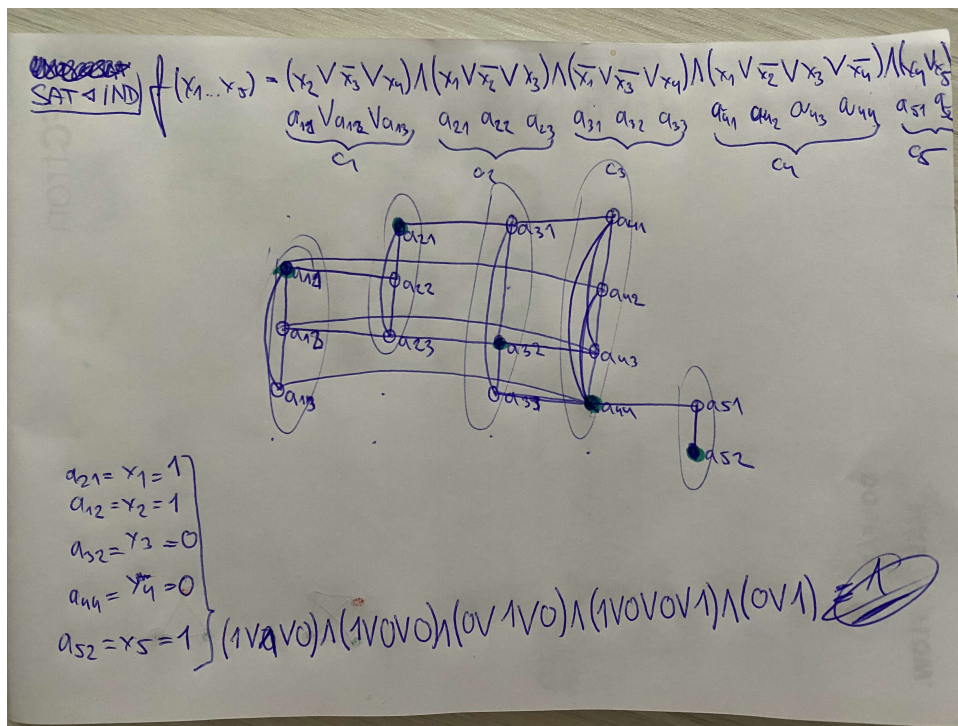 SAT ◁ IND f(x₁...x₅) = (x₂ ∨ x̄₃ ∨ x₄) ∧ (x₁ ∨ x̄₂ ∨ x₃) ∧ (x̄₁ ∨ x̄₃ ∨ x₄) ∧ (x₁ ∨ x̄₂ ∨ x₃ ∨ x̄₄) ∧ (x₄ ∨ x₅)
∨ a₁₂ ∨ a₁₃, a₂₁ a₂₂ a₂₃ a₃₁ a₃₂ a₃₃ a₄₁ a₄₂ a₄₃ a₄₄ a₅₁
C₁ C₄ C₅
C₂ C₃
a₂₁ a₃₁ a₄₁
a₂₂ a₄₂
a₂₃ a₃₂ a₄₃
a₁₃ a₃₃ a₄₄ a₅₁
a₅₂
a₂₁ = x₁ = 1
a₁₂ = x₂ = 1
a₃₂ = x₃ = 0
a₄₄ = x̄₄ = 0
a₅₂ = x₅ = 1 } (1 ∨ 1 ∨ 0) ∧ (1 ∨ 0 ∨ 0) ∧ (0 ∨ 1 ∨ 0) ∧ (1 ∨ 0 ∨ 0 ∨ 1) ∧ (0 ∨ 1) = 1